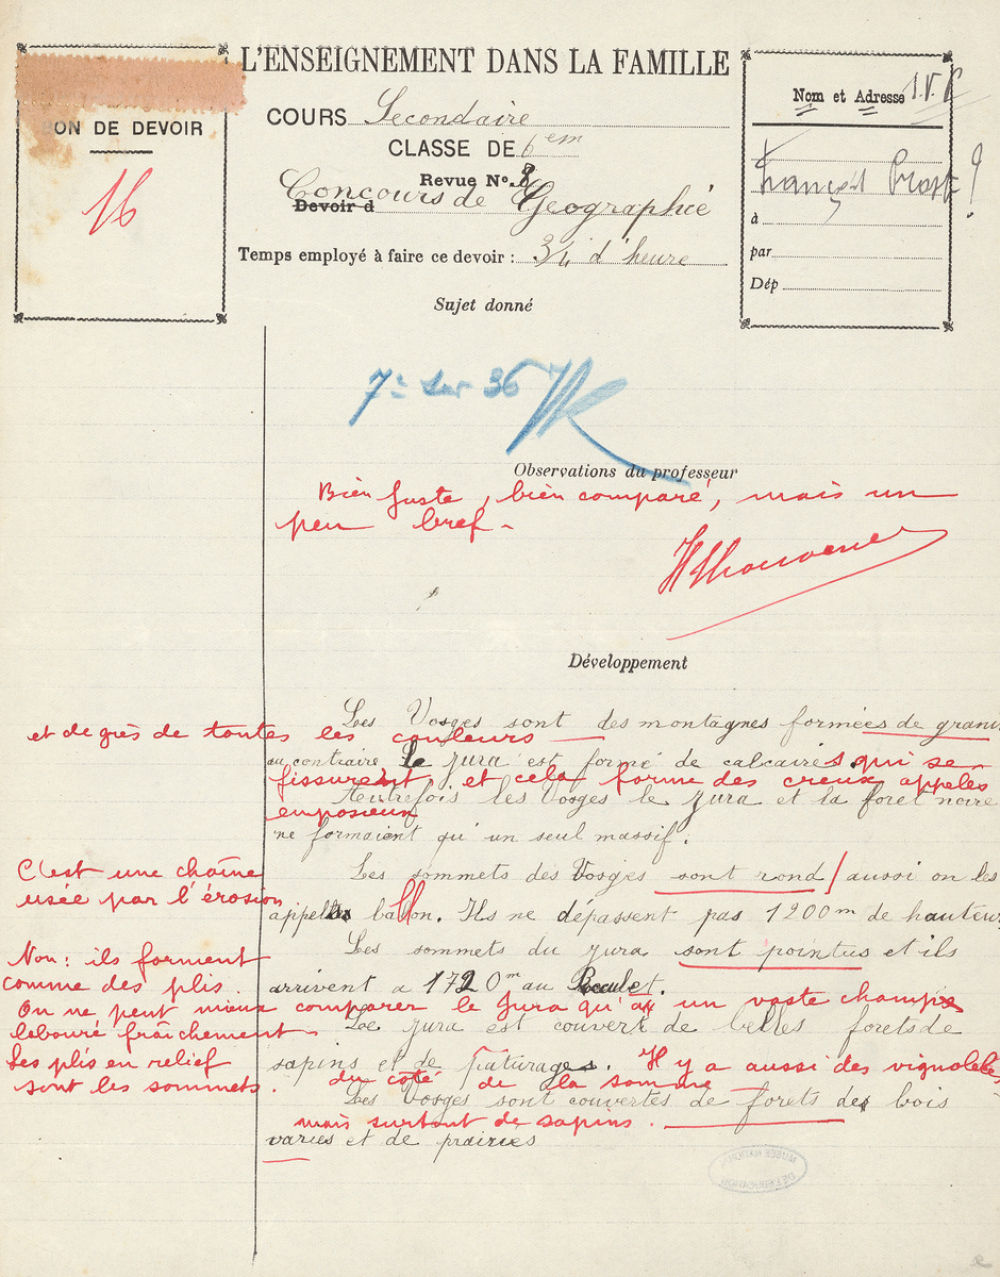 L'ENSEIGNEMENT DANS LA FAMILLE
BON DE DEVOIR
16
COURS Secondaire
CLASSE DE 6em
Revue No. 8
Devoir d
Concours de Géographie
Temps employé à faire ce devoir : 3/4 d'heure
Nom et Adresse
François
à
par
Dép
Sujet donné
7
36
Observations du professeur
Bien juste, bien comparé, mais un
peu bref -
Développement
Les Vosges sont des montagnes formées de granit
et de grès de toutes les couleurs
au contraire le Jura est formé de calcaires qui se
fissurent et cela forme des creux appelés
Autrefois les Vosges le Jura et la foret noire
emposieux
ne formaient qu'un seul massif.
C'est une chaîne
Les sommets des Vosges sont rond / aussi on les
usée par l'érosion
appelle ballon. Ils ne dépassent pas 1200m de hauteur
Les sommets du Jura sont pointus et ils
Non : ils forment
comme des plis.
arrivent a 1720m au Reculet.
On ne peut mieux comparer le Jura qu'à un vaste champ
Le Jura est couvert de belles forets de
labouré fraîchement
Les plis en relief
sapins et de paturages. Il y a aussi des vignobles
sont les sommets.
du côté de la somme
Les Vosges sont couvertes de forets de bois
mais surtout de sapins.
varies et de prairies